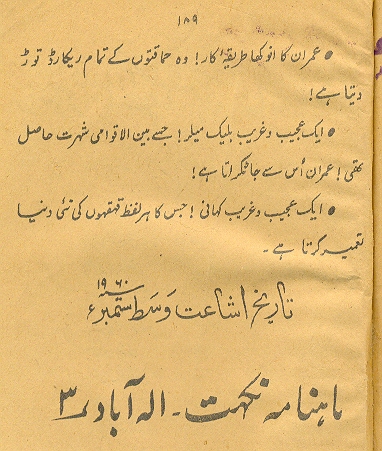 ۱۸۹
● عمران کا انوکھا طریقۂ کار! وہ حماقتوں کے تمام ریکارڈ توڑ
دیتا ہے!
● ایک عجیب و غریب بلیک میلر! جسے بین الاقوامی شہرت حاصل
تھی! عمران اُس سے جا ٹکراتا ہے!
● ایک عجیب و غریب کہانی! جس کا ہر لفظ قہقہوں کی نئی دنیا
تعمیر کرتا ہے۔
تاریخ اشاعت وَسَط ستمبر ۱۹۶۰ء
ماہنامہ نکہت۔ الہ آباد ۳